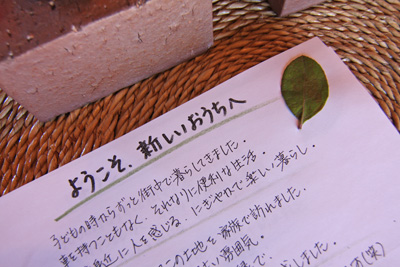 ようこそ、新しいおうちへ
子どもの時からずっと街中で暮らしてきました。
車を持つこともなく、それなりに便利な生活。
身近に人を感じる、にぎやかで楽しい暮らし。
この土地を家族で訪れました。
雰囲気。
しました。
(笑)